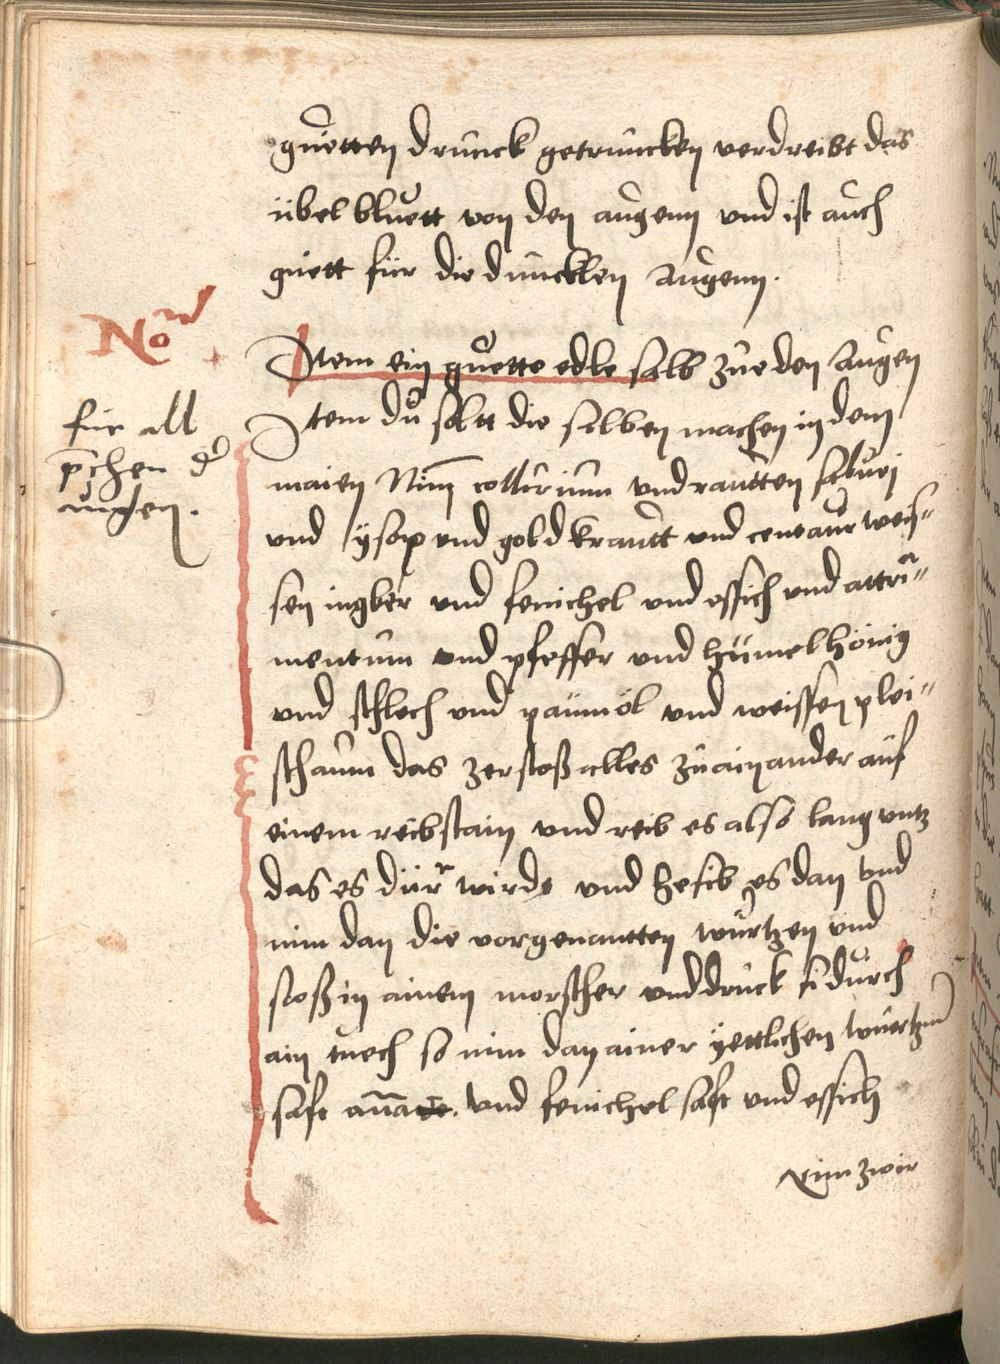 guetten drunck getruncken verdreibt das
übel bluett von den augenn und ist auch
guett für die duncklen augenn.
No
Item ein guette edle salb zue den augen
für all
Item du soltt die salben machen in dem
augen.
maien Nim collirium und rautten saluei
und ysop und goldkrautt und centaur weis=
sen ingber und fenichel und essich und attra=
mentum und pfeffer und hümelhönig
und schlech und paümöl und weissen plei=
schaum das zerstoß alles zu ainander auf
einem reibstain und reib es also lang untz
das es dürr wirde und hesib es dan und
nim dan die vorgenantten würtzen und
stoß in ainem morscher und druck si durch
ain tuech so nim dan ainer yettlichen wuertzen
saft und fenichel saft und essich
Nim zwir